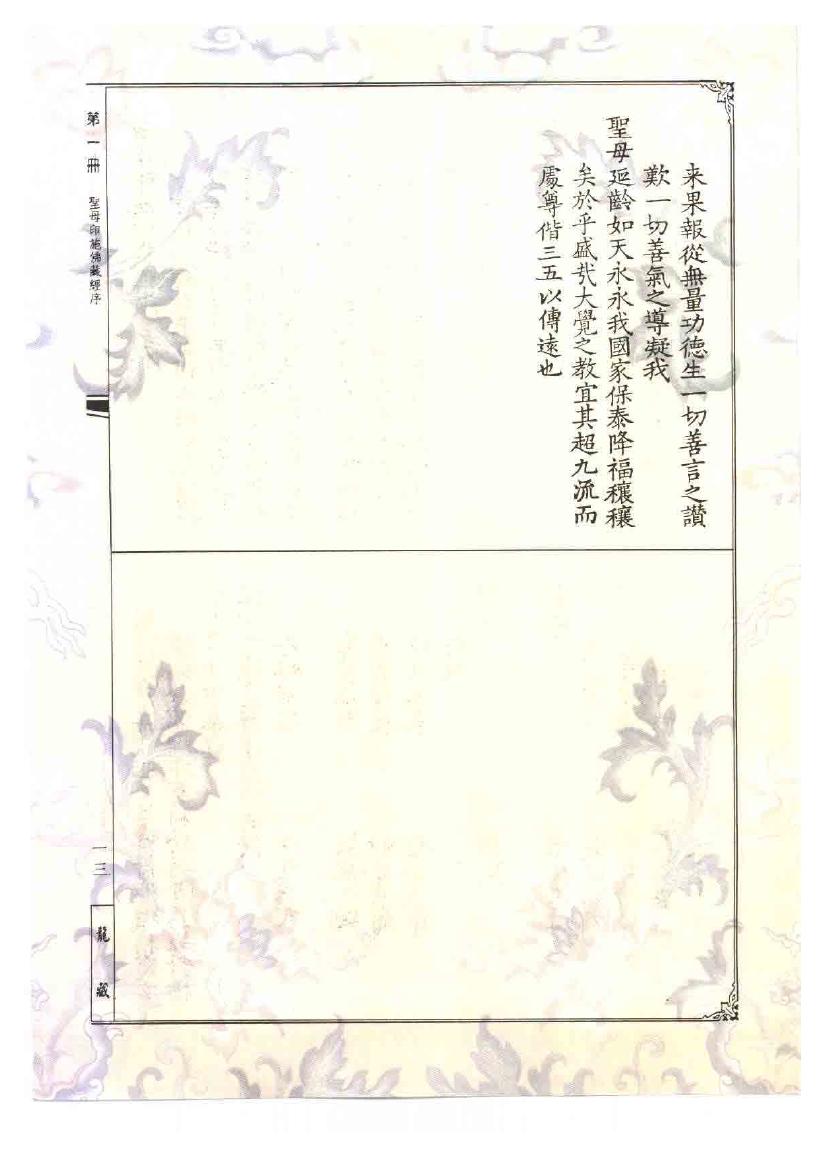 来果報從無量功德生一切善言之讃
歎一切善氣之導凝我
聖母延齡如天永永我國家保泰降福穰穰
矣於乎盛㢤大覺之教宜其超九流而
處尊偕三五以傳遠也
第一冊 聖母印施佛藏經序
一三
龍藏